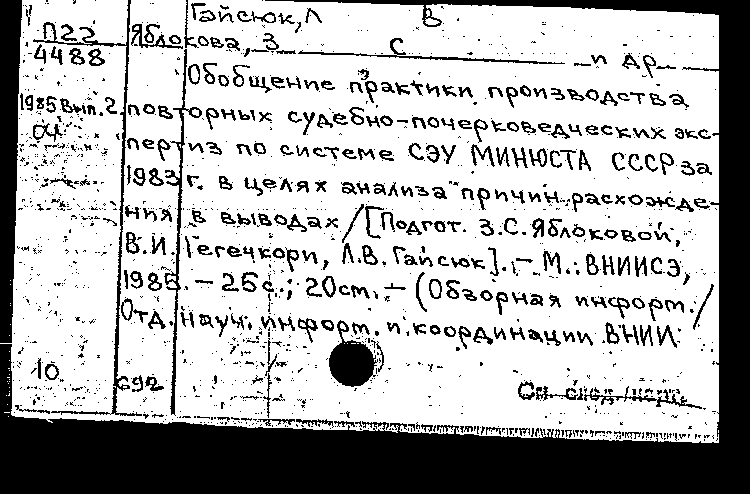 Гайсюк, Л В
П22 Яблокова, З С и др.
4488
Обобщение практики производства
1985 Вып. 2. повторных судебно-почерковедческих экс-
04 пертиз по системе СЭУ МИНЮСТА СССР за
1983 г. в целях анализа причин расхожде-
ния в выводах / [Подгот. З.С. Яблоковой,
В.И. Гегечкори, Л.В. Гайсюк]. — М.: ВНИИСЭ,
1985. — 26 с.; 20 cm. — (Обзорная информ. /
Отд. науч. информ. и координации ВНИИ
10 692 См. след. карт.